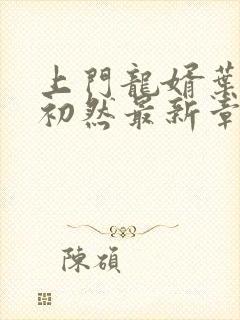 上門龍婿葉
初然最新章
陳碩